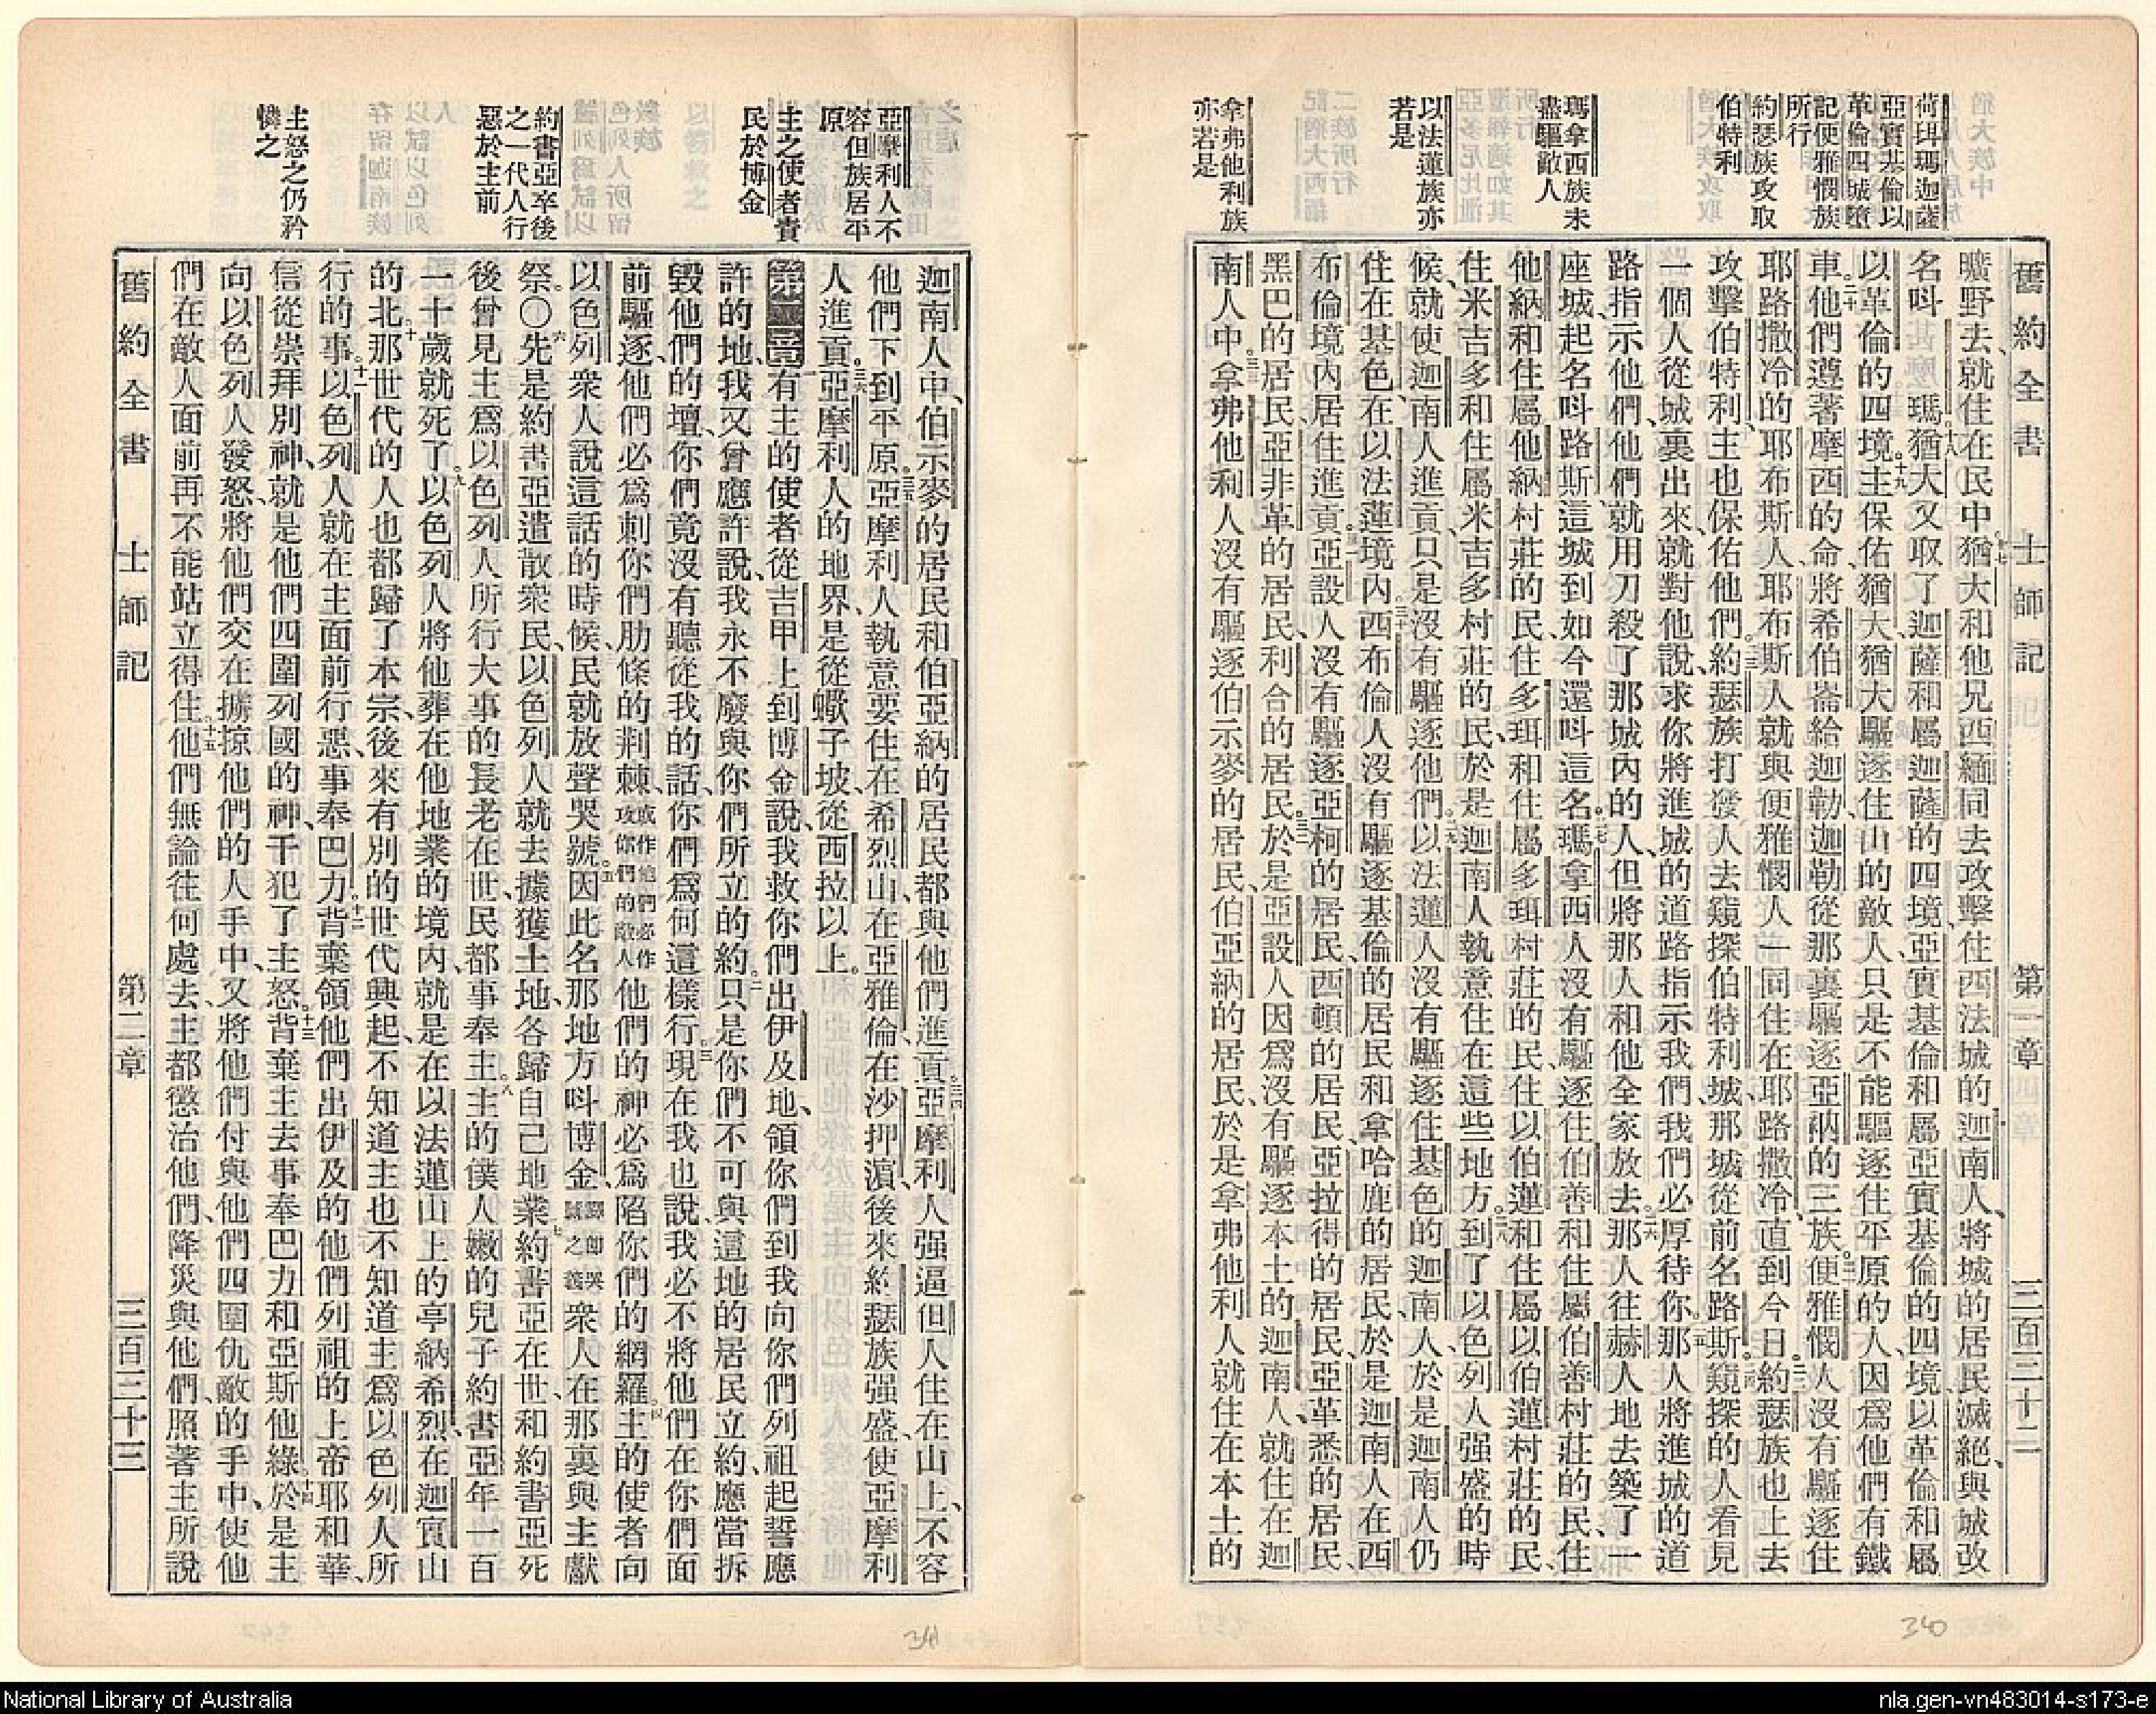 舊約全書 士師記 第一章 三百三十二
荷珥瑪迦薩
亞實基倫以
革倫四城墮
記便雅憫族
所行
約瑟族攻取
伯特利
瑪拿西族未
盡驅敵人
以法蓮族亦
若是
拿弗他利族
亦若是
曠野去、就住在民中、十七猶大和他兄西緬同去攻擊住西法城的迦南人、將城的居民滅絕、與城改
名呌瑪、十八猶大又取了迦薩和屬迦薩的四境、亞實基倫和屬亞實基倫的四境、以革倫和屬
以革倫的四境。十九主保佑猶大、猶大驅逐住山的敵人、只是不能驅逐住平原的人、因爲他們有鐵
車。二十他們遵著摩西的命、將希伯崙給迦勒、迦勒從那裏驅逐亞衲的三族。二一便雅憫人沒有驅逐住
耶路撒冷的耶布斯人、耶布斯人就與便雅憫人一同住在耶路撒冷、直到今日。二二約瑟族也上去
攻擊伯特利、主也保佑他們。二三約瑟族打發人去窺探伯特利城、那城從前名路斯。二四窺探的人看見
一個人從城裏出來、就對他說、求你將進城的道路指示我們、我們必厚待你。二五那人將進城的道
路指示他們、他們就用刀殺了那城內的人、但將那人和他全家放去。二六那人往赫人地去、築了一
座城、起名呌路斯、這城到如今還呌這名。二七瑪拿西人沒有驅逐住伯善和住屬伯善村莊的民、住
他納和住屬他納村莊的民、住多珥和住屬多珥村莊的民、住以伯蓮和住屬以伯蓮村莊的民、
住米吉多和住屬米吉多村莊的民、於是迦南人執意住在這些地方。二八到了以色列人强盛的時
候、就使迦南人進貢、只是沒有驅逐他們。二九以法蓮人沒有驅逐住基色的迦南人、於是迦南人仍
住在基色、在以法蓮境內。三十西布倫人沒有驅逐基倫的居民、和拿哈鹿的居民、於是迦南人在西
布倫境內居住進貢。三一亞設人沒有驅逐亞柯的居民、西頓的居民、亞拉得的居民、亞革悉的居民、
黑巴的居民、亞非革的居民、利合的居民、三二於是亞設人因爲沒有驅逐本土的迦南人、就住在迦
南人中。三三拿弗他利人沒有驅逐伯示麥的居民、伯亞納的居民、於是拿弗他利人就住在本土的
340
亞摩利人不
容但族居平
原
主之使者責
民於博金
約書亞卒後
之一代人行
惡於主前
主怒之仍矜
憐之
迦南人中、伯示麥的居民和伯亞納的居民都與他們進貢。三四亞摩利人强逼但人住在山上、不容
他們下到平原。三五亞摩利人執意要住在希烈山、在亞雅倫、在沙押濱、後來約瑟族强盛、使亞摩利
人進貢。三六亞摩利人的地界、是從蠍子坡、從西拉以上。
第二章 一有主的使者從吉甲上到博金、說、我救你們出伊及地、領你們到我向你們列祖起誓應
許的地、我又曾應許說、我永不廢與你們所立的約。二只是你們不可與這地的居民立約、應當拆
毀他們的壇、你們竟沒有聽從我的話、你們爲何這樣行。三現在我也說、我必不將他們在你們面
前驅逐、他們必爲刺你們肋條的荆棘、或作他們必作攻你們的敵人他們的神必爲陷你們的網羅。四主的使者向
以色列衆人說這話的時候、民就放聲哭號。五因此名那地方呌博金、譯卽哭號之義衆人在那裏與主獻
祭。〇六先是約書亞遣散衆民、以色列人就去據獲土地、各歸自己地業。七約書亞在世、和約書亞死
後曾見主爲以色列人所行大事的長老在世、民都事奉主。八主的僕人嫩的兒子約書亞年一百
一十歲就死了。九以色列人將他葬在他地業的境內、就是在以法蓮山上的亭納希烈、在迦實山
的北。十那世代的人也都歸了本宗、後來有別的世代興起、不知道主也不知道主爲以色列人所
行的事。十一以色列人就在主面前行惡、事奉巴力。十二背棄領他們出伊及的他們列祖的上帝耶和華、
信從崇拜別神、就是他們四圍列國的神、干犯了主怒。十三背棄主去事奉巴力和亞斯他綠。十四於是主
向以色列人發怒、將他們交在擄掠他們的人手中、又將他們付與他們四圍仇敵的手中、使他
們在敵人面前再不能站立得住。十五他們無論往何處去、主都懲治他們、降災與他們、照著主所說
舊約全書 士師記 第二章 三百三十三
341
National Library of Australia
nla.gen-vn483014-s173-e